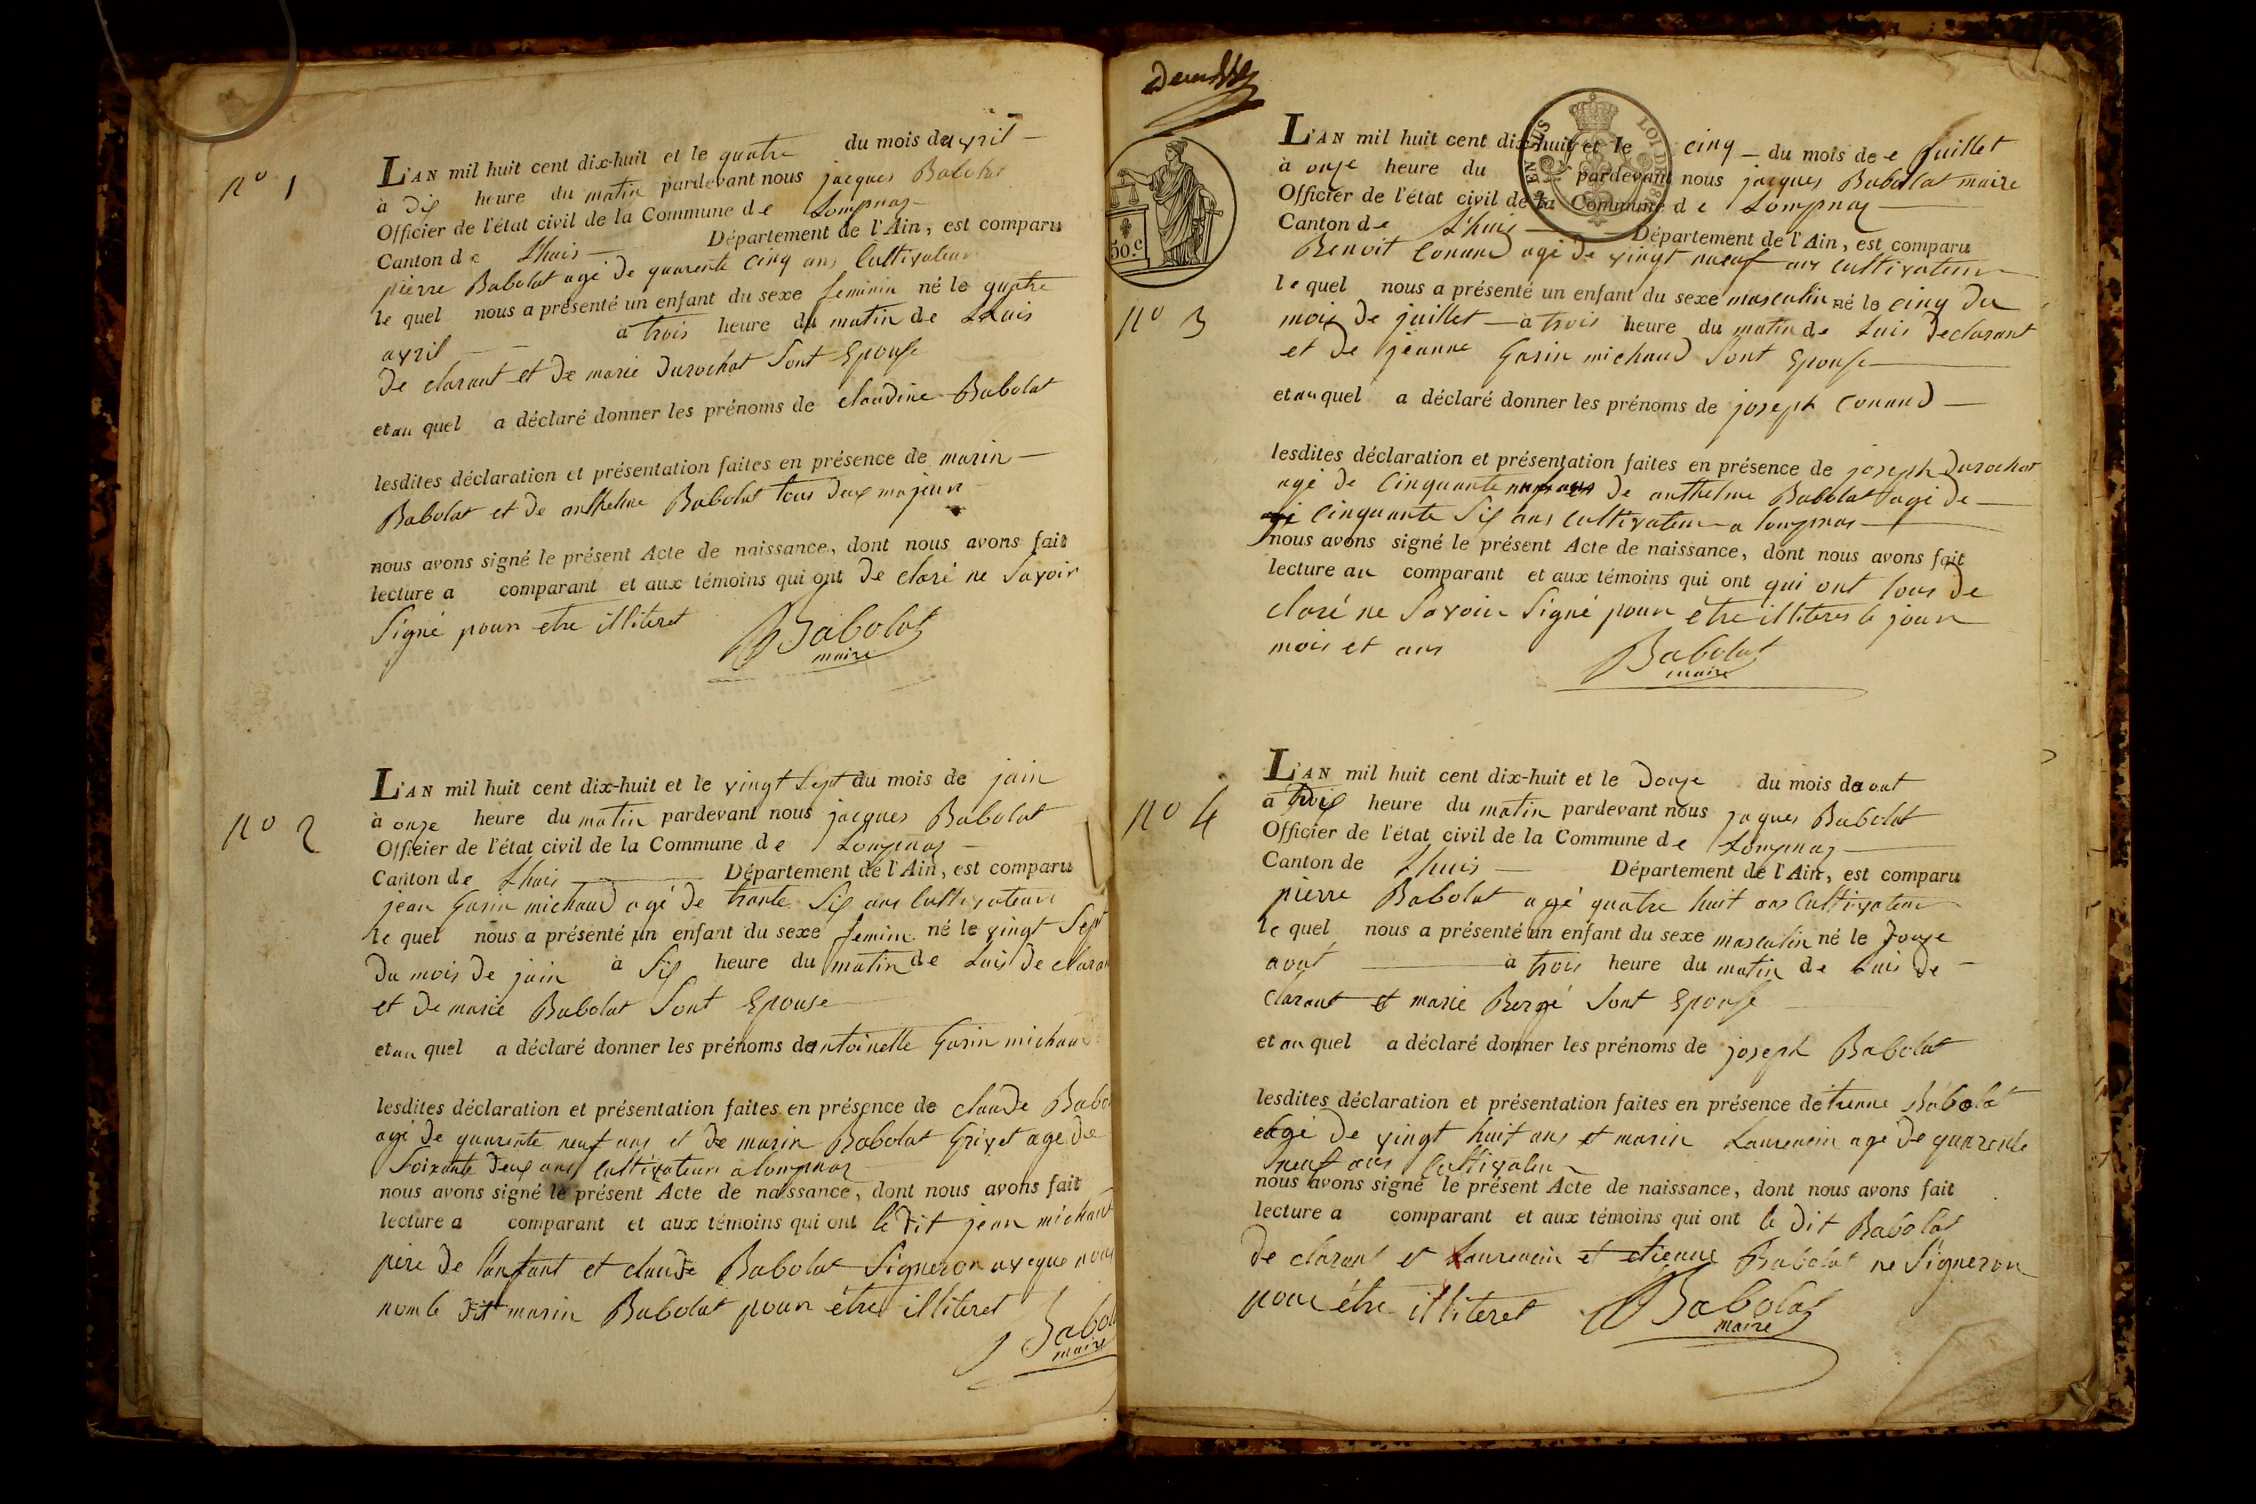 nº 1
L'AN mil huit cent dix-huit et le quatre du mois de avril
à dix heure du matin pardevant nous jacques Babolat
Officier de l'état civil de la Commune de Lompnas
Canton de Lhuis Département de l'Ain, est comparu
pierre Babolat agé de quarente cinq ans Cultivateur
le quel nous a présenté un enfant du sexe feminin né le quatre
avril à trois heure du matin de Luis
de clarant et de marie Durochat Sont Epouse
et au quel a déclaré donner les prénoms de claudine Babolat
lesdites déclaration et présentation faites en présence de marin
Babolat et de anthelme Babolat tous deux majeur
nous avons signé le présent Acte de naissance, dont nous avons fait
lecture a comparant et aux témoins qui ont de claré ne Savoir
Signé pour etre illiteret
Babolat
maire
nº 2
L'AN mil huit cent dix-huit et le vingt Sept du mois de juin
à onze heure du matin pardevant nous jacques Babolat
Officier de l'état civil de la Commune de Lompnas
Canton de Lhuis Département de l'Ain, est comparu
jean Garin michaud agé de trante Six ans Cultivateur
le quel nous a présenté un enfant du sexe feminin né le vingt Sept
du mois de juin à Six heure du matin de Luis de claran
et de marie Babolat Sont Epouse
et au quel a déclaré donner les prénoms de antoinette Garin michaud
lesdites déclaration et présentation faites en présence de claude Babo
agé de quarente neuf ans et de marin Babolat Grivet age de
Soixante deux ans Cultivateur a lompnas
nous avons signé le présent Acte de naissance, dont nous avons fait
lecture a comparant et aux témoins qui ont le dit jean michaut
père de l'anfant et claude Babolat Signeron aveque nous
non le dit marin Babolat pour être illiteret
Babol
maire
50.c
EN SUS
LOI DE 18
nº 3
L'AN mil huit cent dix-huit et le cinq du mois de e juillet
à onze heure du pardevant nous jacques Babolat maire
Officier de l'état civil de la Commune de Lompnas
Canton de Lhuis Département de l'Ain, est comparu
Benoit Conand agé de vingt nueuf ans cultivateur
le quel nous a présenté un enfant du sexe masculin né le cinq du
mois de juillet à trois heure du matin de Luis declarant
et de jeanne Garin michaud Sont Epouse
et au quel a déclaré donner les prénoms de joseph Conand
lesdites déclaration et présentation faites en présence de joseph Durochat
agé de Cinquante de anthelme Babolat agé de
cinquante Six ans Cultivateur a lompnas
nous avons signé le présent Acte de naissance, dont nous avons fait
lecture au comparant et aux témoins qui ont qui ont tous de
claré ne Savoir Signé pour être illiteres le jour
mois et ans
Babolat
maire
nº 4
L'AN mil huit cent dix-huit et le douze du mois de aout
à heure du matin pardevant nous jaques Babolat
Officier de l'état civil de la Commune de Lompnas
Canton de Lhuis Département de l'Ain, est comparu
pierre Babolat agé quatre huit ans Cultivateur
le quel nous a présenté un enfant du sexe masculin né le douze
aout à trois heure du matin de Luis de
clarant et marie Bergé Sont Epouse
et au quel a déclaré donner les prénoms de joseph Babolat
lesdites déclaration et présentation faites en présence de etienne Babolat
agé de vingt huit ans et marin Laurencin age de quarente
neuf ans Cultivateur
nous avons signé le présent Acte de naissance, dont nous avons fait
lecture a comparant et aux témoins qui ont le dit Babolat
de clarant et Laurencin et etienne Babolat ne Signeron
pour être illiteret
Babolat
maire